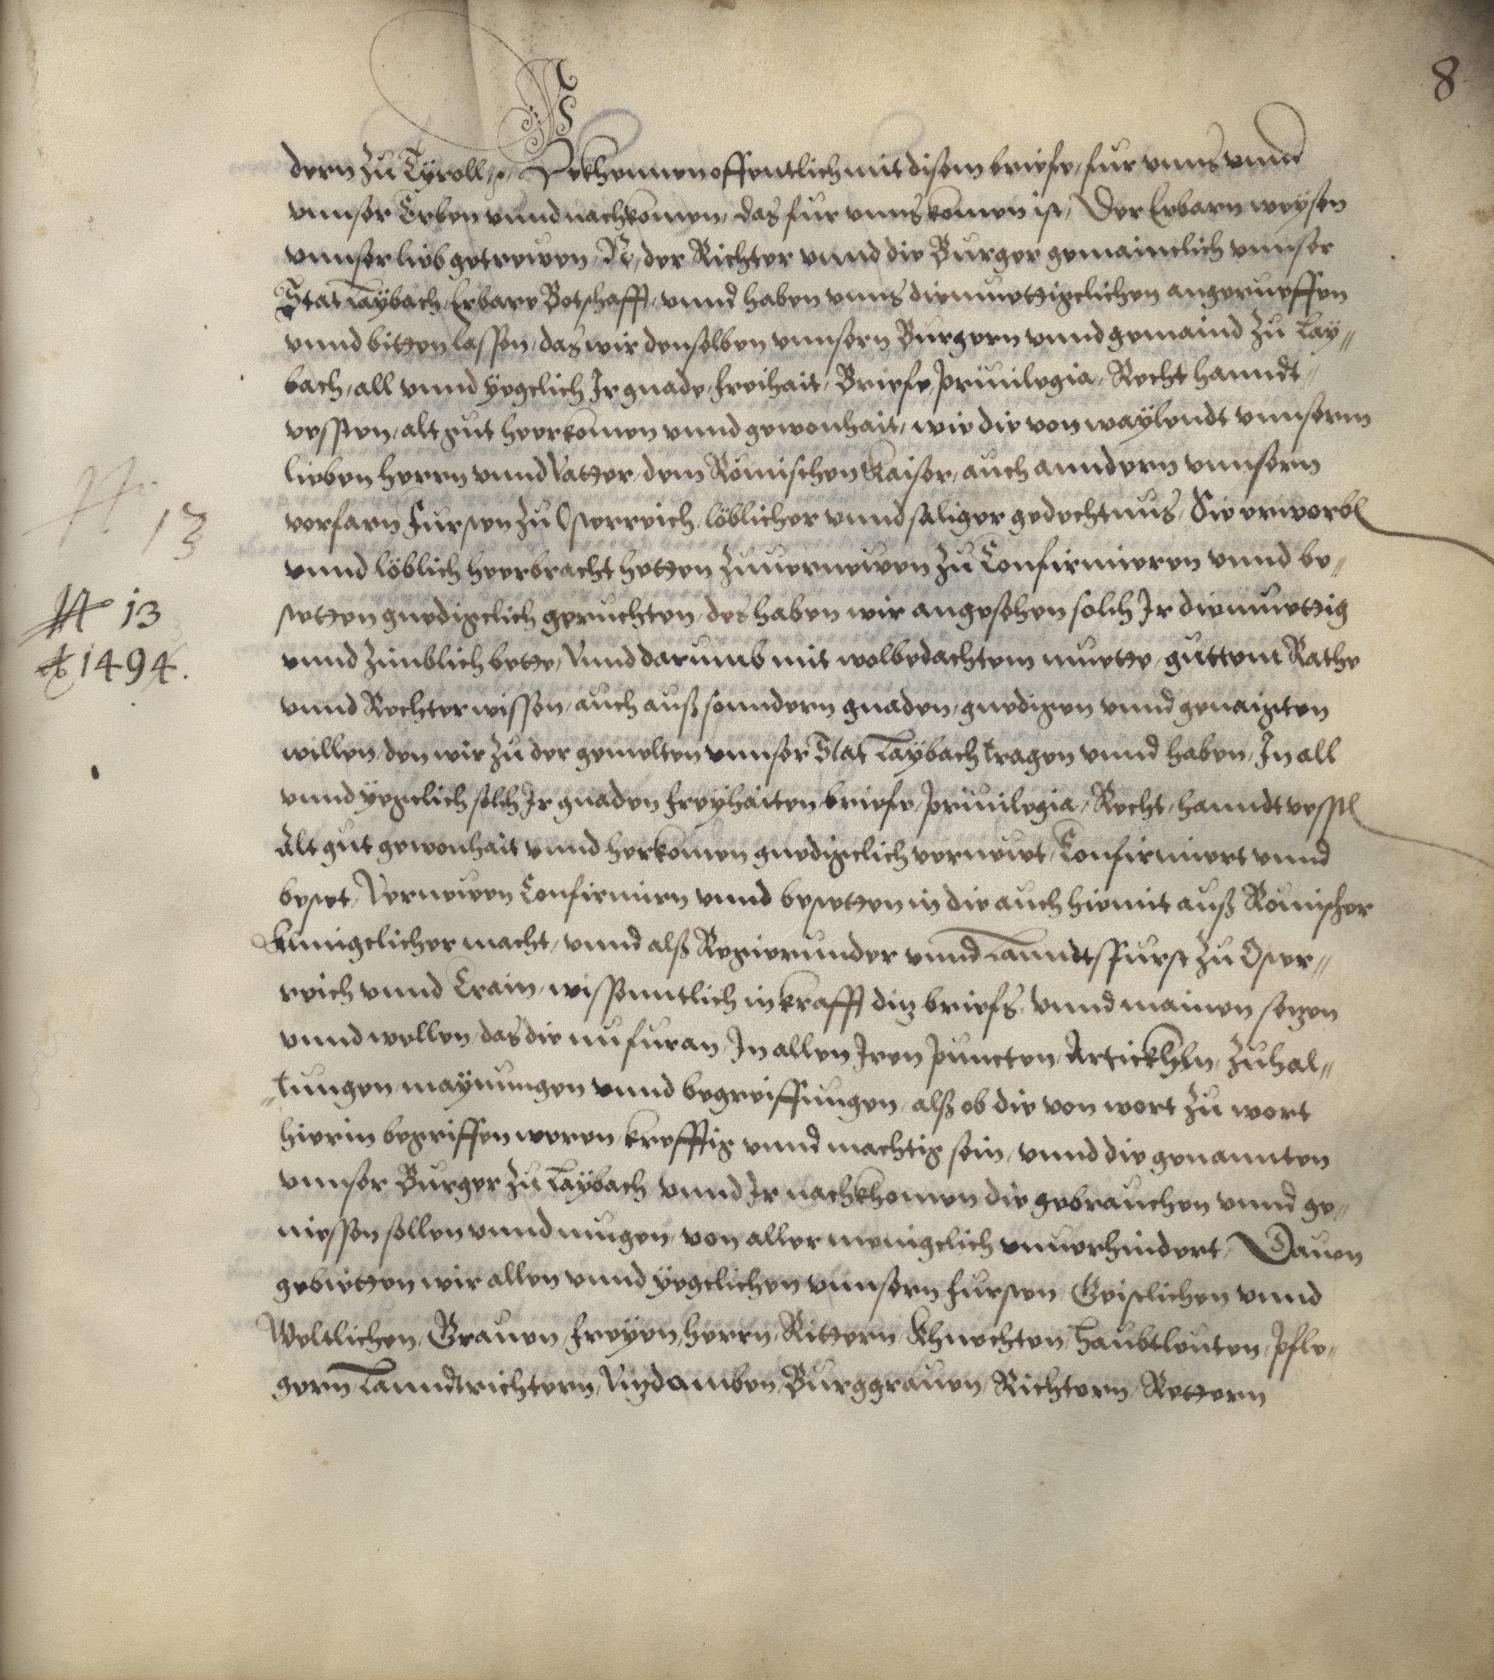 8
dern zu Tyroll etc. Bekhennen offentlich mit disem briefe, fur vnns vnnd
vnnser Erben vnnd nachkomen, das fur vnns komen ist, Der Erbarn weysen
vnnser lieb getrewen, N, der Richter vnnd die Burger gemainclich vnnser
Stat Laybach, Erbare Botschafft, vnnd haben vnns diemuettigclichen angerueffen
vnnd bitten lassen, das wir denselben vnnsern Burgern vnnd gemaind zu Lay„
bach, all vnnd yegclich Ir gnade, freihait, Briefe, priuilegia, Recht hanndt„
vessten, alt gut heerkomen vnnd gewonhait, wie die von waylendt vnnserm
lieben herrn vnnd Vatter, dem Römischen Kaiser, auch anndern vnnsern
vorfarn Fursten zu Osterreich, löblicher vnnd säliger gedechtnus, Sie erworbn
vnnd löblich heerbracht hetten zuuernewen zu Confirmieren vnnd be„
stetten gnedigclich geruechten, des haben wir angesehen solch Ir diemuettig
vnnd zimblich bette, Vnnd darumb mit wolbedachtem muette, guttem Rathe
vnnd Rechter wissen, auch auß sonndern gnaden, gnedigen vnnd genaigten
willen, den wir zu der gemelten vnnser Stat Laybach tragen vnnd haben, In all
vnnd yegclich solch Ir gnaden freyhaiten briefe, priuilegia, Recht, hanndtvesstn
Alt gut gewonhait vnnd herkomen gnedigclich vernewt, Confirmiert vnnd
bestet, Vernewen Confirmirn vnnd bestetten in die auch hiemit auß Römischer
Kunigclicher macht, vnnd alß Regierunder vnnd Lanndtsfurst zu Oster„
reich vnnd Crain, wissenntlich in krafft ditz briefs, vnnd mainen setzen
vnnd wellen, das die nu furan, In allen Iren puncten, Artickhln, Zuhal„
„tungen maynungen vnnd begreiffungen, alß ob die von wort zu wort
hierin begriffen weren, krefftig vnnd machtig sein, vnnd die genannten
vnnser Burger zu Laybach vnnd Ir nachkhomen die gebrauchen vnnd ge„
niessen sollen vnnd mugen, von aller menigclich vnuerhindert, Dauon
gebietten wir allen vnnd yegclichen vnnsern fursten Geistlichen vnnd
Weltlichen, Grauen, freyen, herrn, Rittern, Khnechten, Haubtleuten, Pfle„
gern, Lanndtrichtern, Vizdomben, Burggrauen, Richtern, Rettern
13
13
1494.